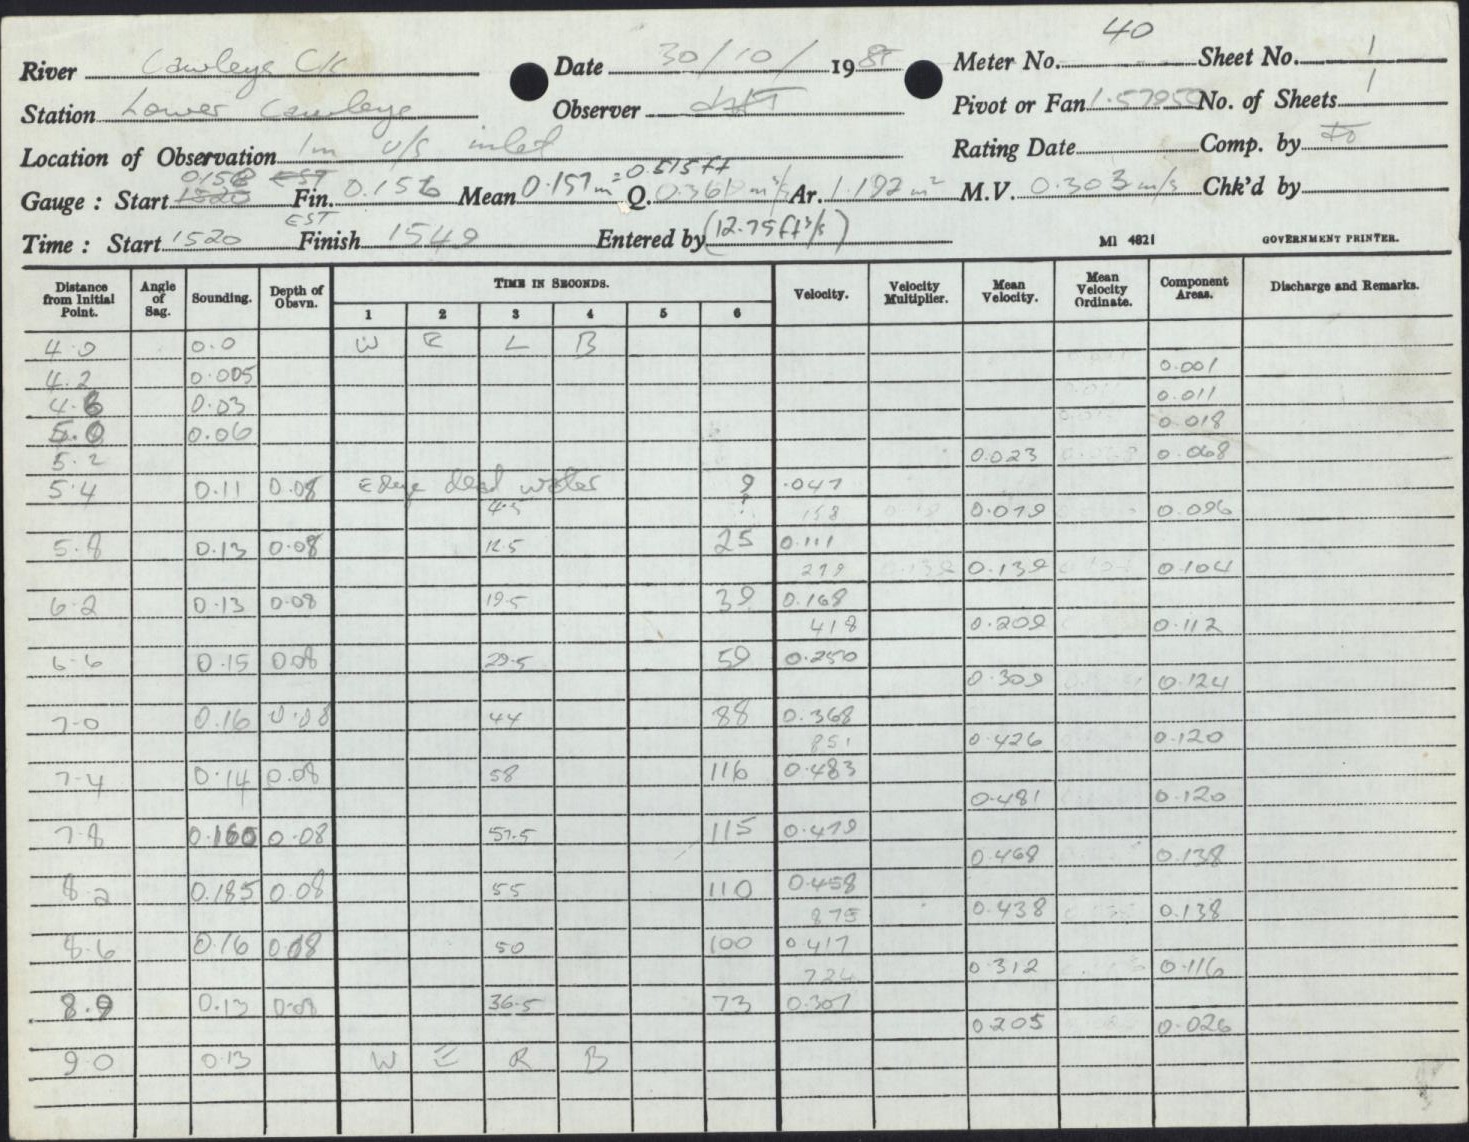 40
River Cawleys Ck Date 30/10/ 19 Meter No. Sheet No. 1
Station Lower Cawleys Observer Pivot or Fan 1.5795 No. of Sheets 1
Location of Observation 1m u/s inlet Rating Date Comp. by
0.158 EST = 0.515 ft
Gauge : Start 1520 Fin. 0.156 Mean 0.157 m Q. 0.361 m³/s Ar. 1.192 m² M.V. 0.303 m/s Chk'd by
EST
Time : Start 1520 Finish 1549 Entered by (12.75 ft³/s) Ml 4821 GOVERNMENT PRINTER.
Distance from Initial Point. Angle of Sag. Sounding. Depth of Obsvn. TIME IN SECONDS. Velocity. Velocity Multiplier. Mean Velocity. Mean Velocity Ordinate. Component Areas. Discharge and Remarks.
1 2 3 4 5 6
4.0 0.0 W E L B
0.001
4.2 0.005
0.011
4.6 0.03
0.018
5.0 0.06
5.2 0.023 0.068
5.4 0.11 0.08 Edge dead water 9 .047
4.5 ? 158 0.079 0.096
5.8 0.13 0.08 12.5 25 0.111
279 0.139 0.139 0.104
6.2 0.13 0.08 19.5 39 0.168
418 0.209 0.112
6.6 0.15 0.08 29.5 59 0.250
0.309 0.124
7.0 0.16 0.08 44 88 0.368
851 0.426 0.120
7.4 0.14 0.08 58 116 0.483
0.481 0.120
7.8 0.160 0.08 57.5 115 0.479
0.468 0.138
8.2 0.185 0.08 55 110 0.458
875 0.438 0.138
8.6 0.16 0.08 50 100 0.417
724 0.312 0.116
8.9 0.13 0.08 36.5 73 0.307
0.205 0.026
9.0 0.13 W E R B